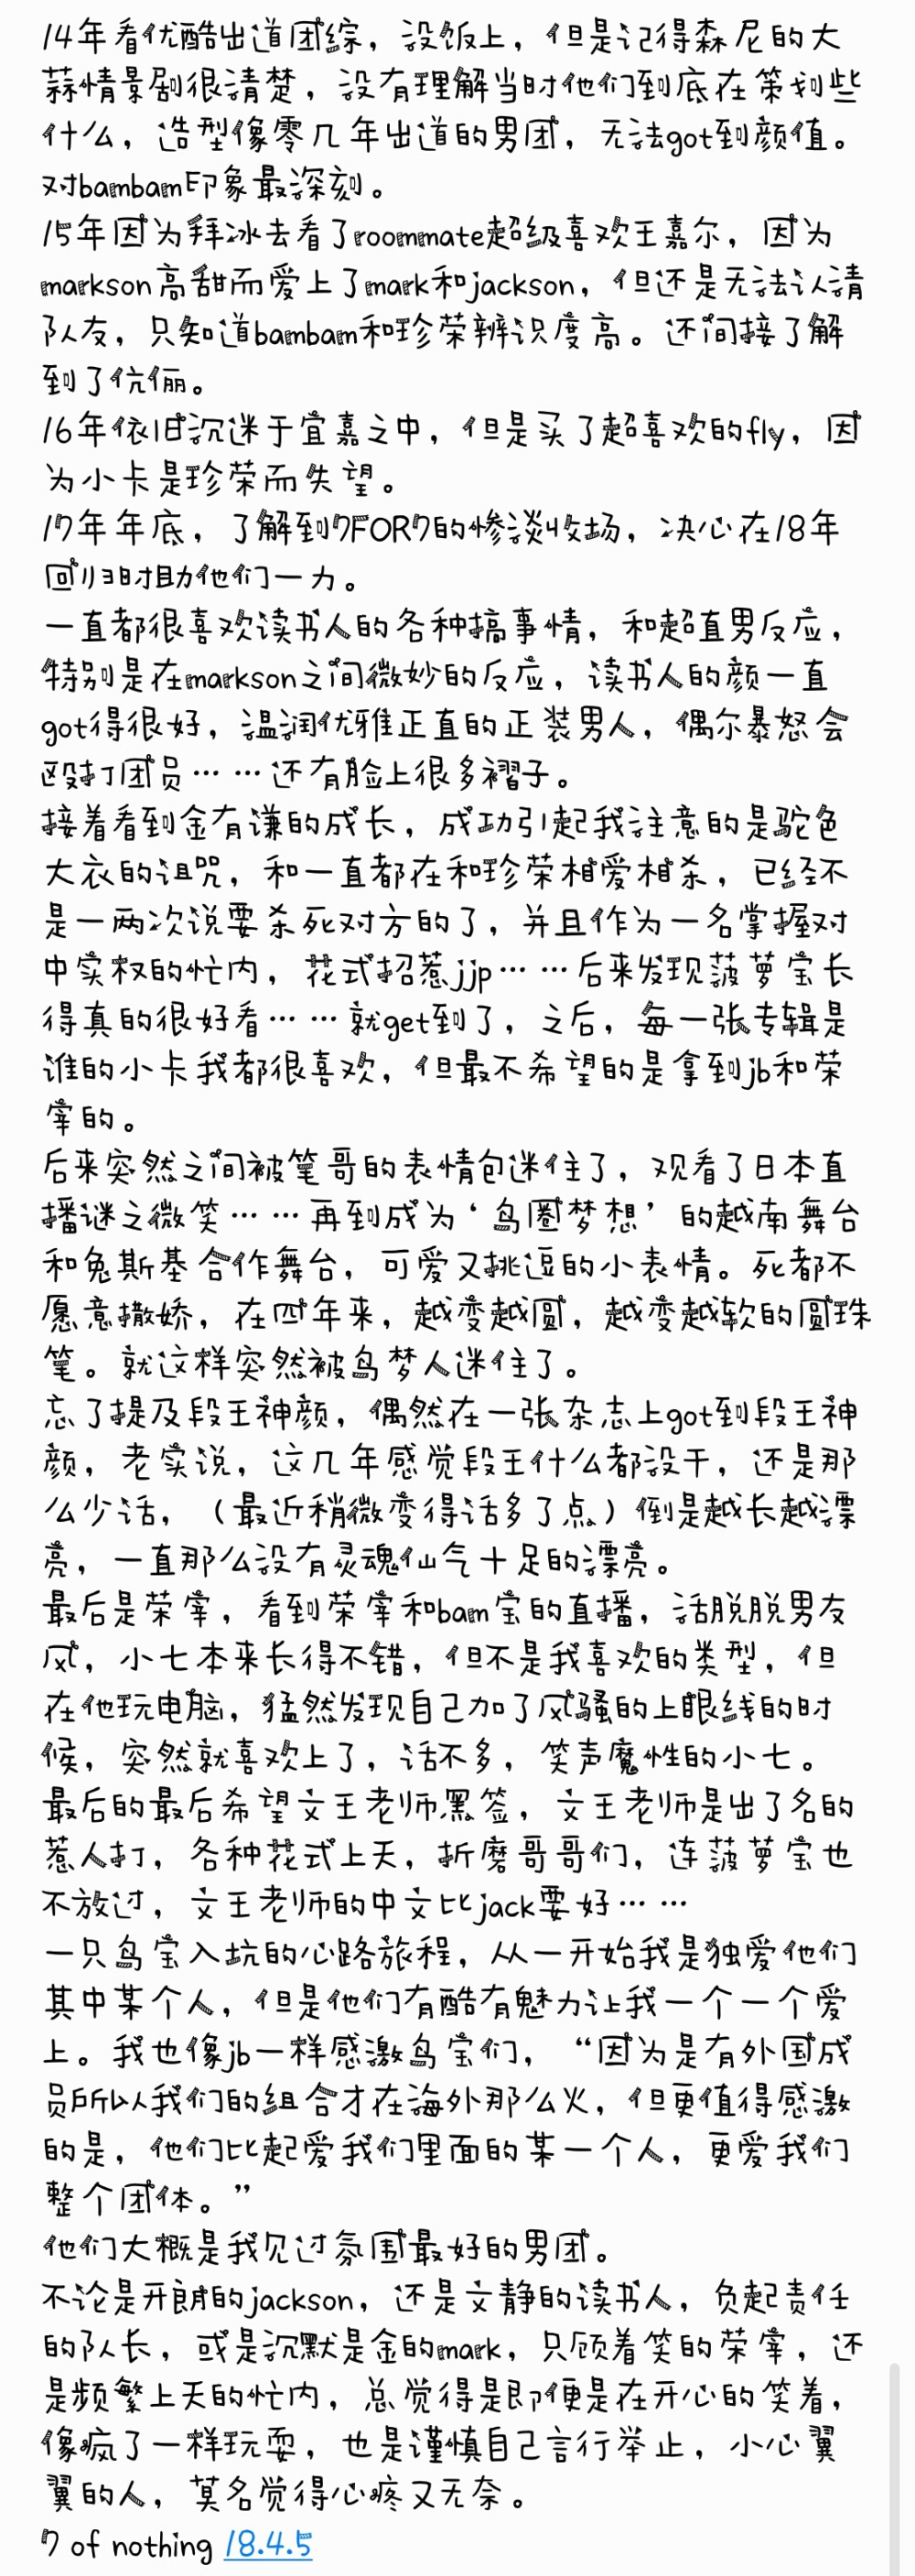 14年看优酷出道团综，没饭上，但是记得森尼的大
蒜情景剧很清楚，没有理解当时他们到底在策划些
什么，造型像零几年出道的男团，无法got到颜值。
对bambam印象最深刻。
15年因为拜冰去看了roommate超级喜欢王嘉尔，因为
markson高甜而爱上了mark和jackson，但还是无法认清
队友，只知道bambam和珍荣辨识度高。还间接了解
到了伉俪。
16年依旧沉迷于宜嘉之中，但是买了超喜欢的fly，因
为小卡是珍荣而失望。
17年年底，了解到7FOR7的惨淡收场，决心在18年
回归时助他们一力。
一直都很喜欢读书人的各种搞事情，和超直男反应，
特别是在markson之间微妙的反应，读书人的颜一直
got得很好，温润优雅正直的正装男人，偶尔暴怒会
殴打团员……还有脸上很多褶子。
接着看到金有谦的成长，成功引起我注意的是驼色
大衣的诅咒，和一直都在和珍荣相爱相杀，已经不
是一两次说要杀死对方的了，并且作为一名掌握对
中实权的忙内，花式招惹jjp……后来发现菠萝宝长
得真的很好看……就get到了，之后，每一张专辑是
谁的小卡我都很喜欢，但最不希望的是拿到jb和荣
宰的。
后来突然之间被笔哥的表情包迷住了，观看了日本直
播谜之微笑……再到成为‘鸟圈梦想’的越南舞台
和兔斯基合作舞台，可爱又挑逗的小表情。死都不
愿意撒娇，在四年来，越变越圆，越变越软的圆珠
笔。就这样突然被鸟梦人迷住了。
忘了提及段王神颜，偶然在一张杂志上got到段王神
颜，老实说，这几年感觉段王什么都没干，还是那
么少话，（最近稍微变得话多了点）倒是越长越漂
亮，一直那么没有灵魂仙气十足的漂亮。
最后是荣宰，看到荣宰和bam宝的直播，活脱脱男友
风，小七本来长得不错，但不是我喜欢的类型，但
在他玩电脑，猛然发现自己加了风骚的上眼线的时
候，突然就喜欢上了，话不多，笑声魔性的小七。
最后的最后希望文王老师黑签，文王老师是出了名的
惹人打，各种花式上天，折磨哥哥们，连菠萝宝也
不放过，文王老师的中文比jack要好……
一只鸟宝入坑的心路旅程，从一开始我是独爱他们
其中某个人，但是他们有酷有魅力让我一个一个爱
上。我也像jb一样感激鸟宝们，“因为是有外国成
员所以我们的组合才在海外那么火，但更值得感激
的是，他们比起爱我们里面的某一个人，更爱我们
整个团体。”
他们大概是我见过氛围最好的男团。
不论是开朗的jackson，还是文静的读书人，负起责任
的队长，或是沉默是金的mark，只顾着笑的荣宰，还
是频繁上天的忙内，总觉得是即便是在开心的笑着，
像疯了一样玩耍，也是谨慎自己言行举止，小心翼
翼的人，莫名觉得心疼又无奈。
7 of nothing 18.4.5